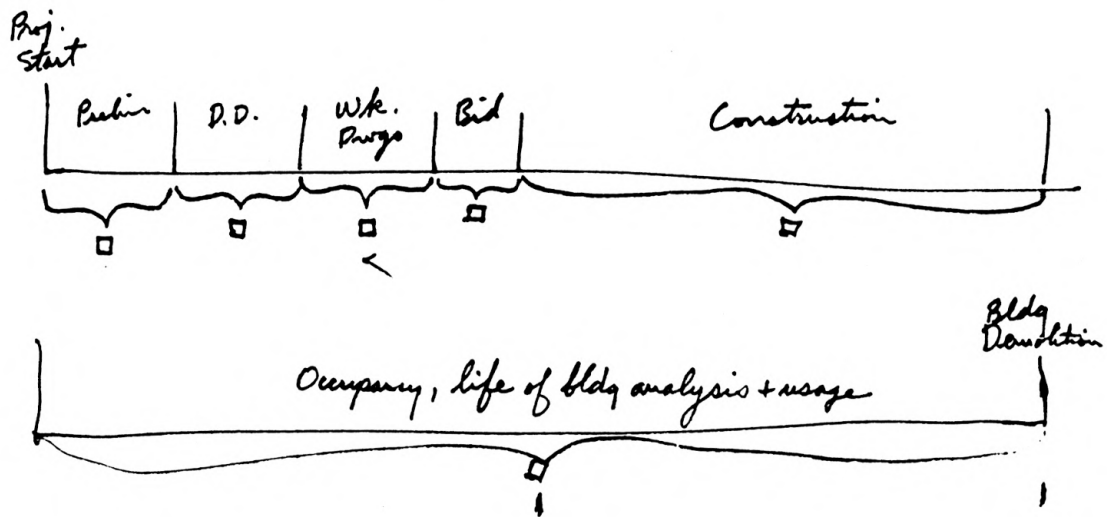 Proj.
Start
Prelim
D.D.
Wk.
Dwgs
Bid
Construction
Bldg
Demolition
Occupancy, life of bldg analysis + usage